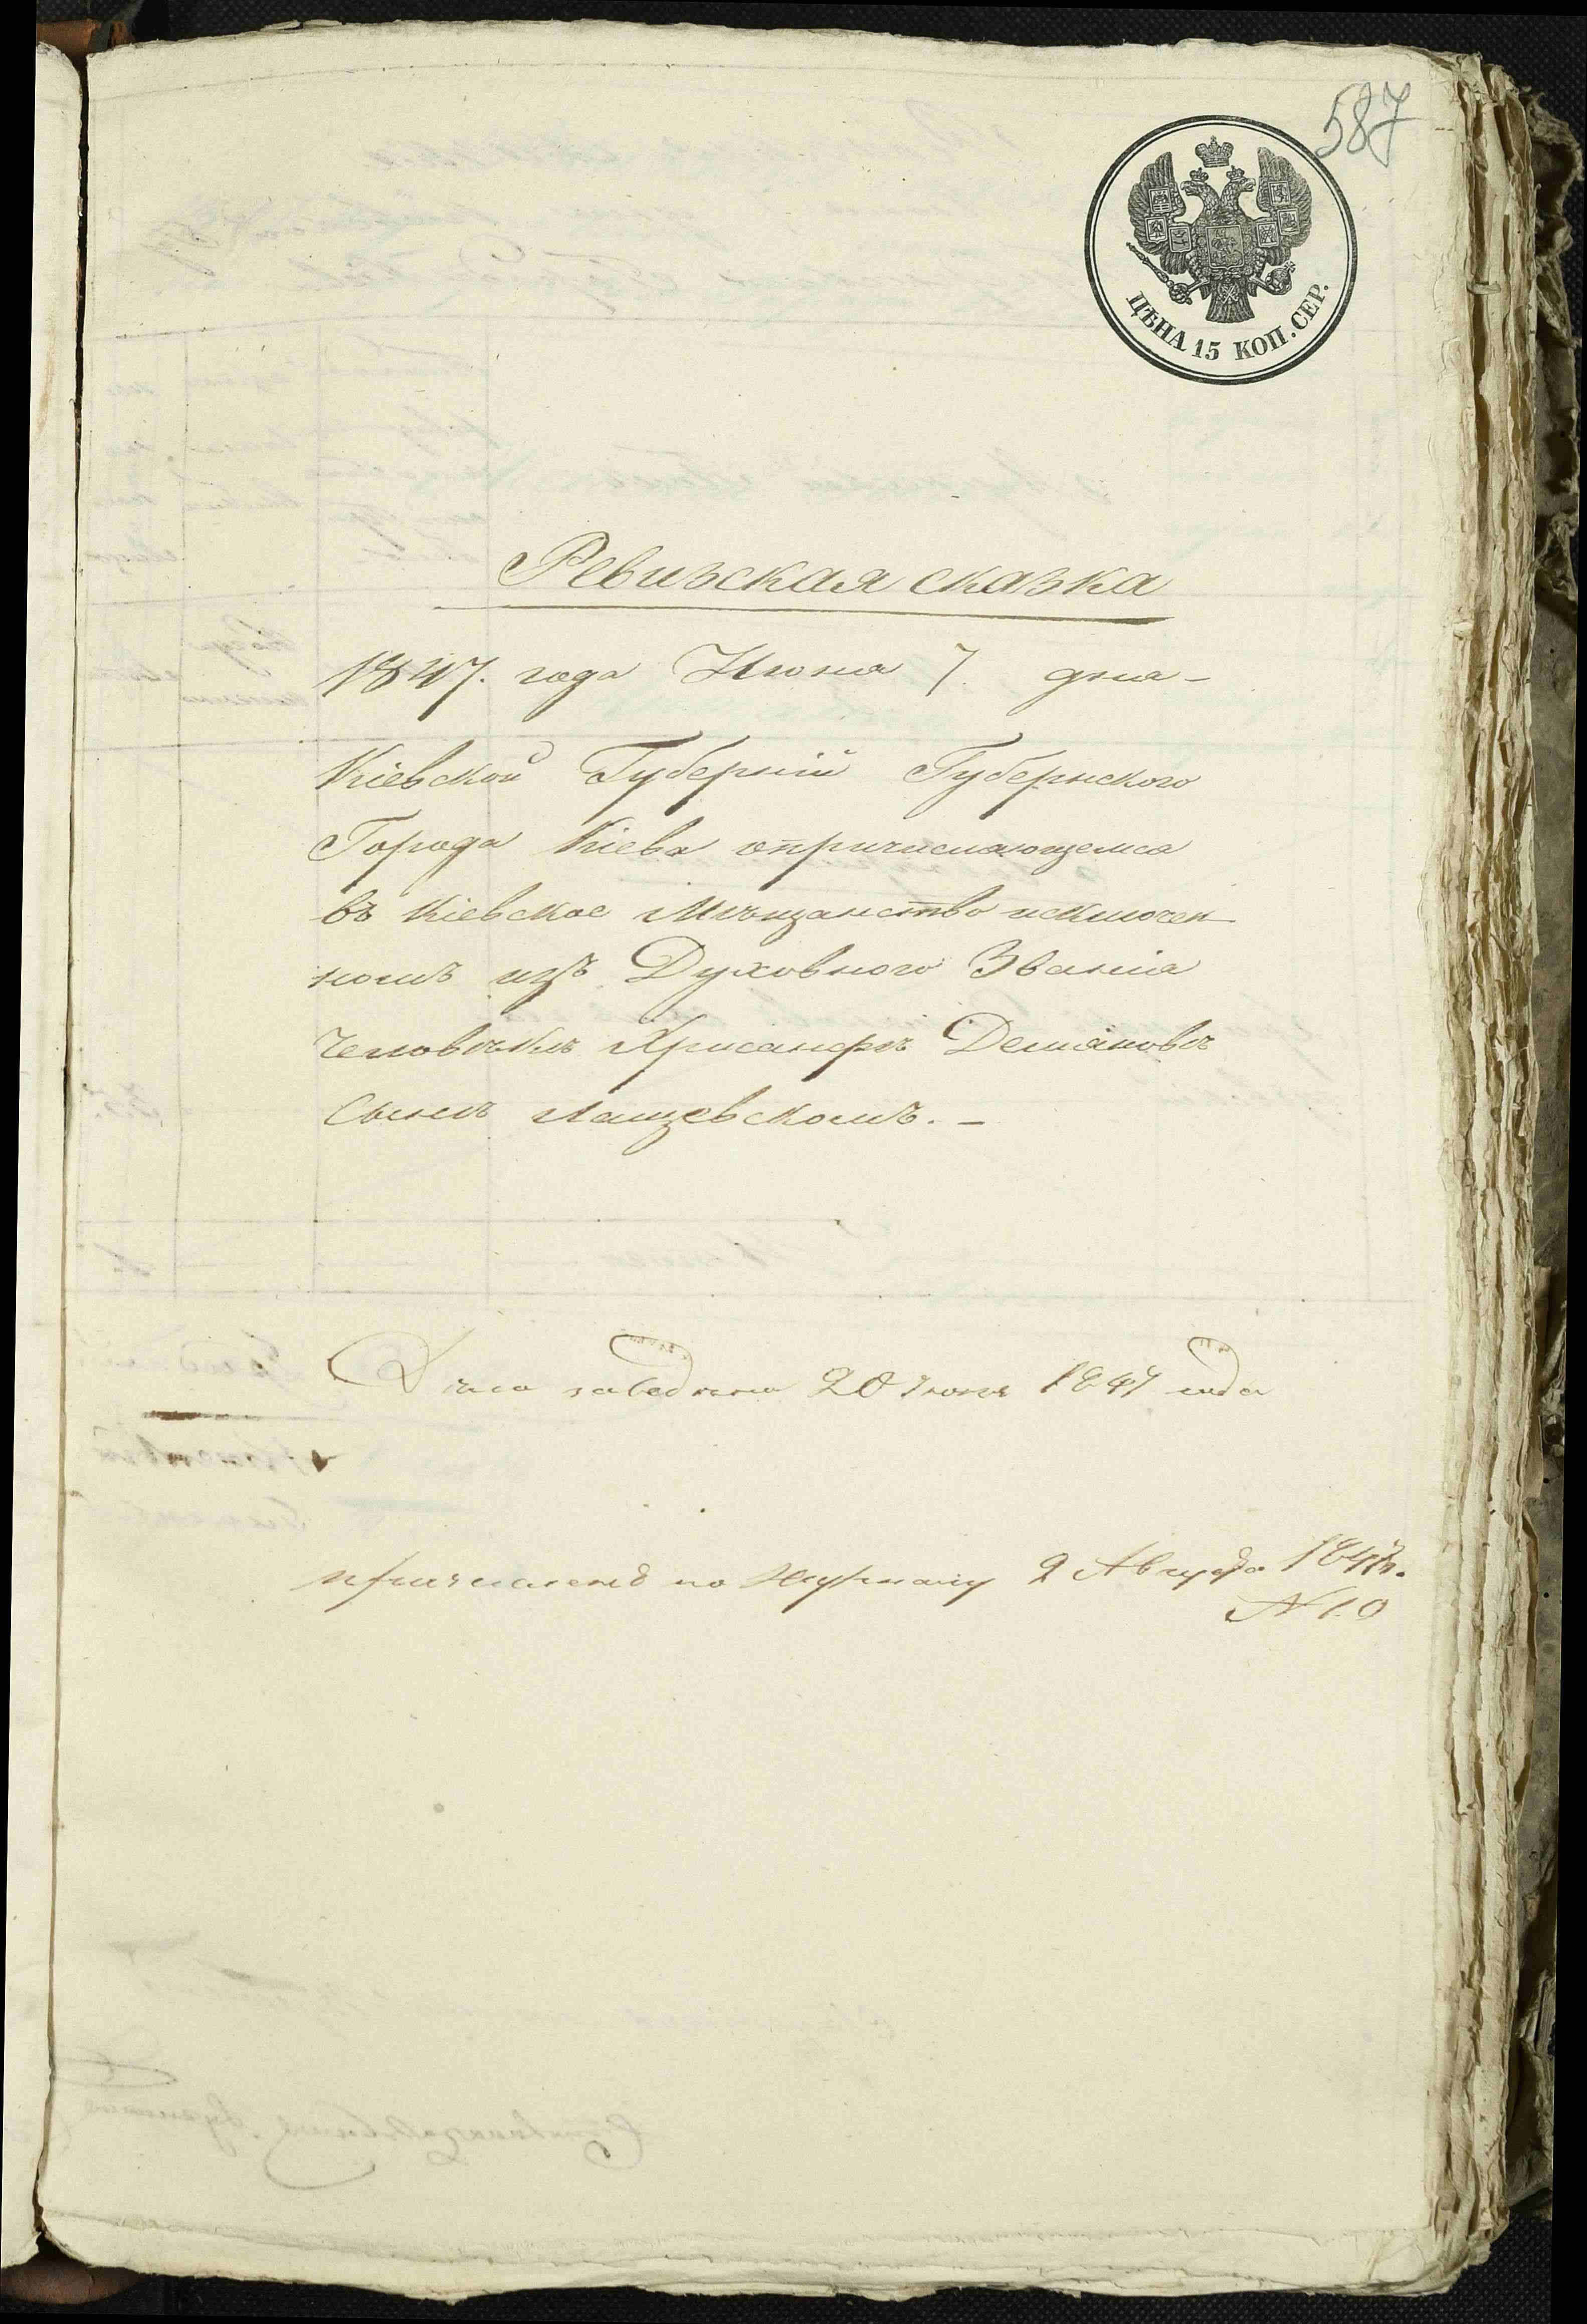 587
ЦѢНА 15 КОП. СЕР.
Ревизская сказка
1847. года Июня 7. дня –
Кіевской Губерніи Губернского
Города Кіева опричисляющемся
въ Кіевское Мѣщанство исключен-
номъ изъ Духовного Званія
человѣкѣ Хрисанфѣ Деміановѣ
сынѣ Лащевскомъ. –
Дѣло заведено 20 Іюня 1847 года
причисленъ по Журналу 2 Августа 1847 г.